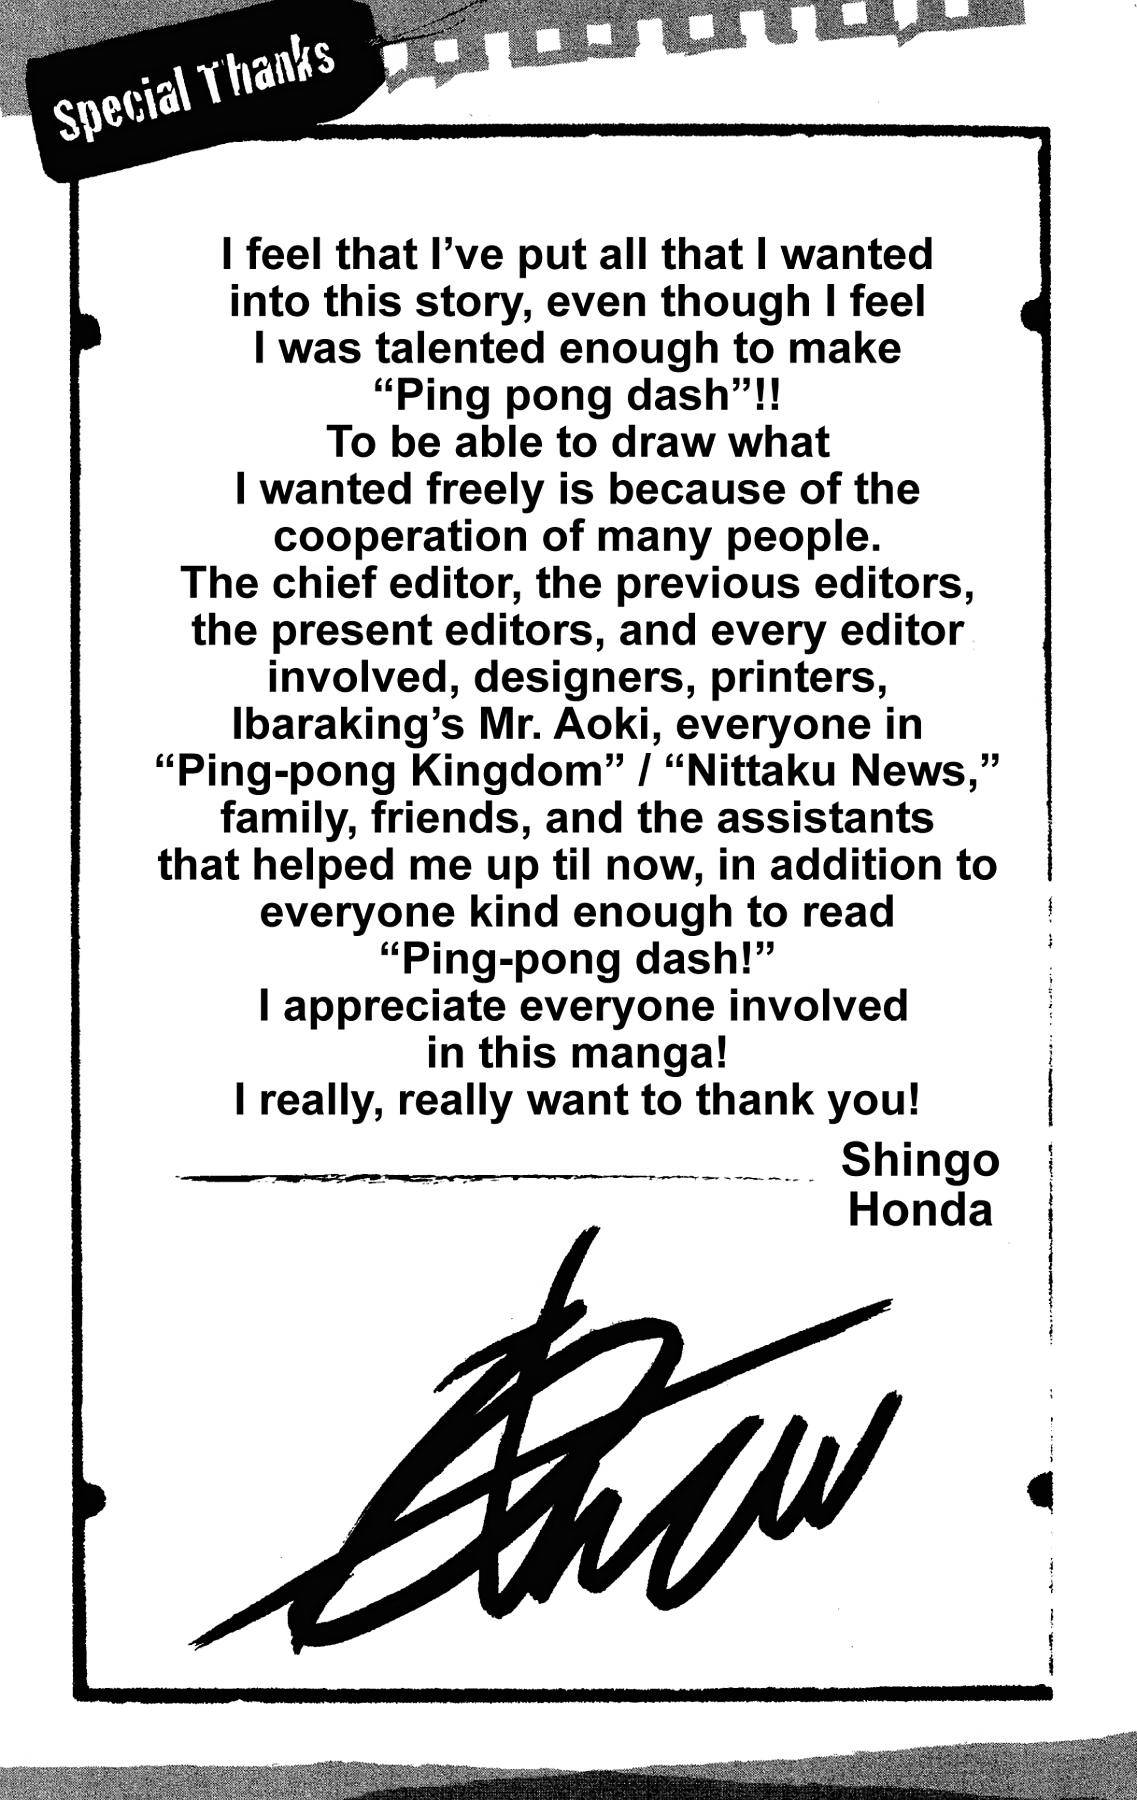 Special Thanks
I feel that I’ve put all that I wanted
into this story, even though I feel
I was talented enough to make
“Ping pong dash”!!
To be able to draw what
I wanted freely is because of the
cooperation of many people.
The chief editor, the previous editors,
the present editors, and every editor
involved, designers, printers,
Ibaraking’s Mr. Aoki, everyone in
“Ping-pong Kingdom” / “Nittaku News,”
family, friends, and the assistants
that helped me up til now, in addition to
everyone kind enough to read
“Ping-pong dash!”
I appreciate everyone involved
in this manga!
I really, really want to thank you!
Shingo
Honda